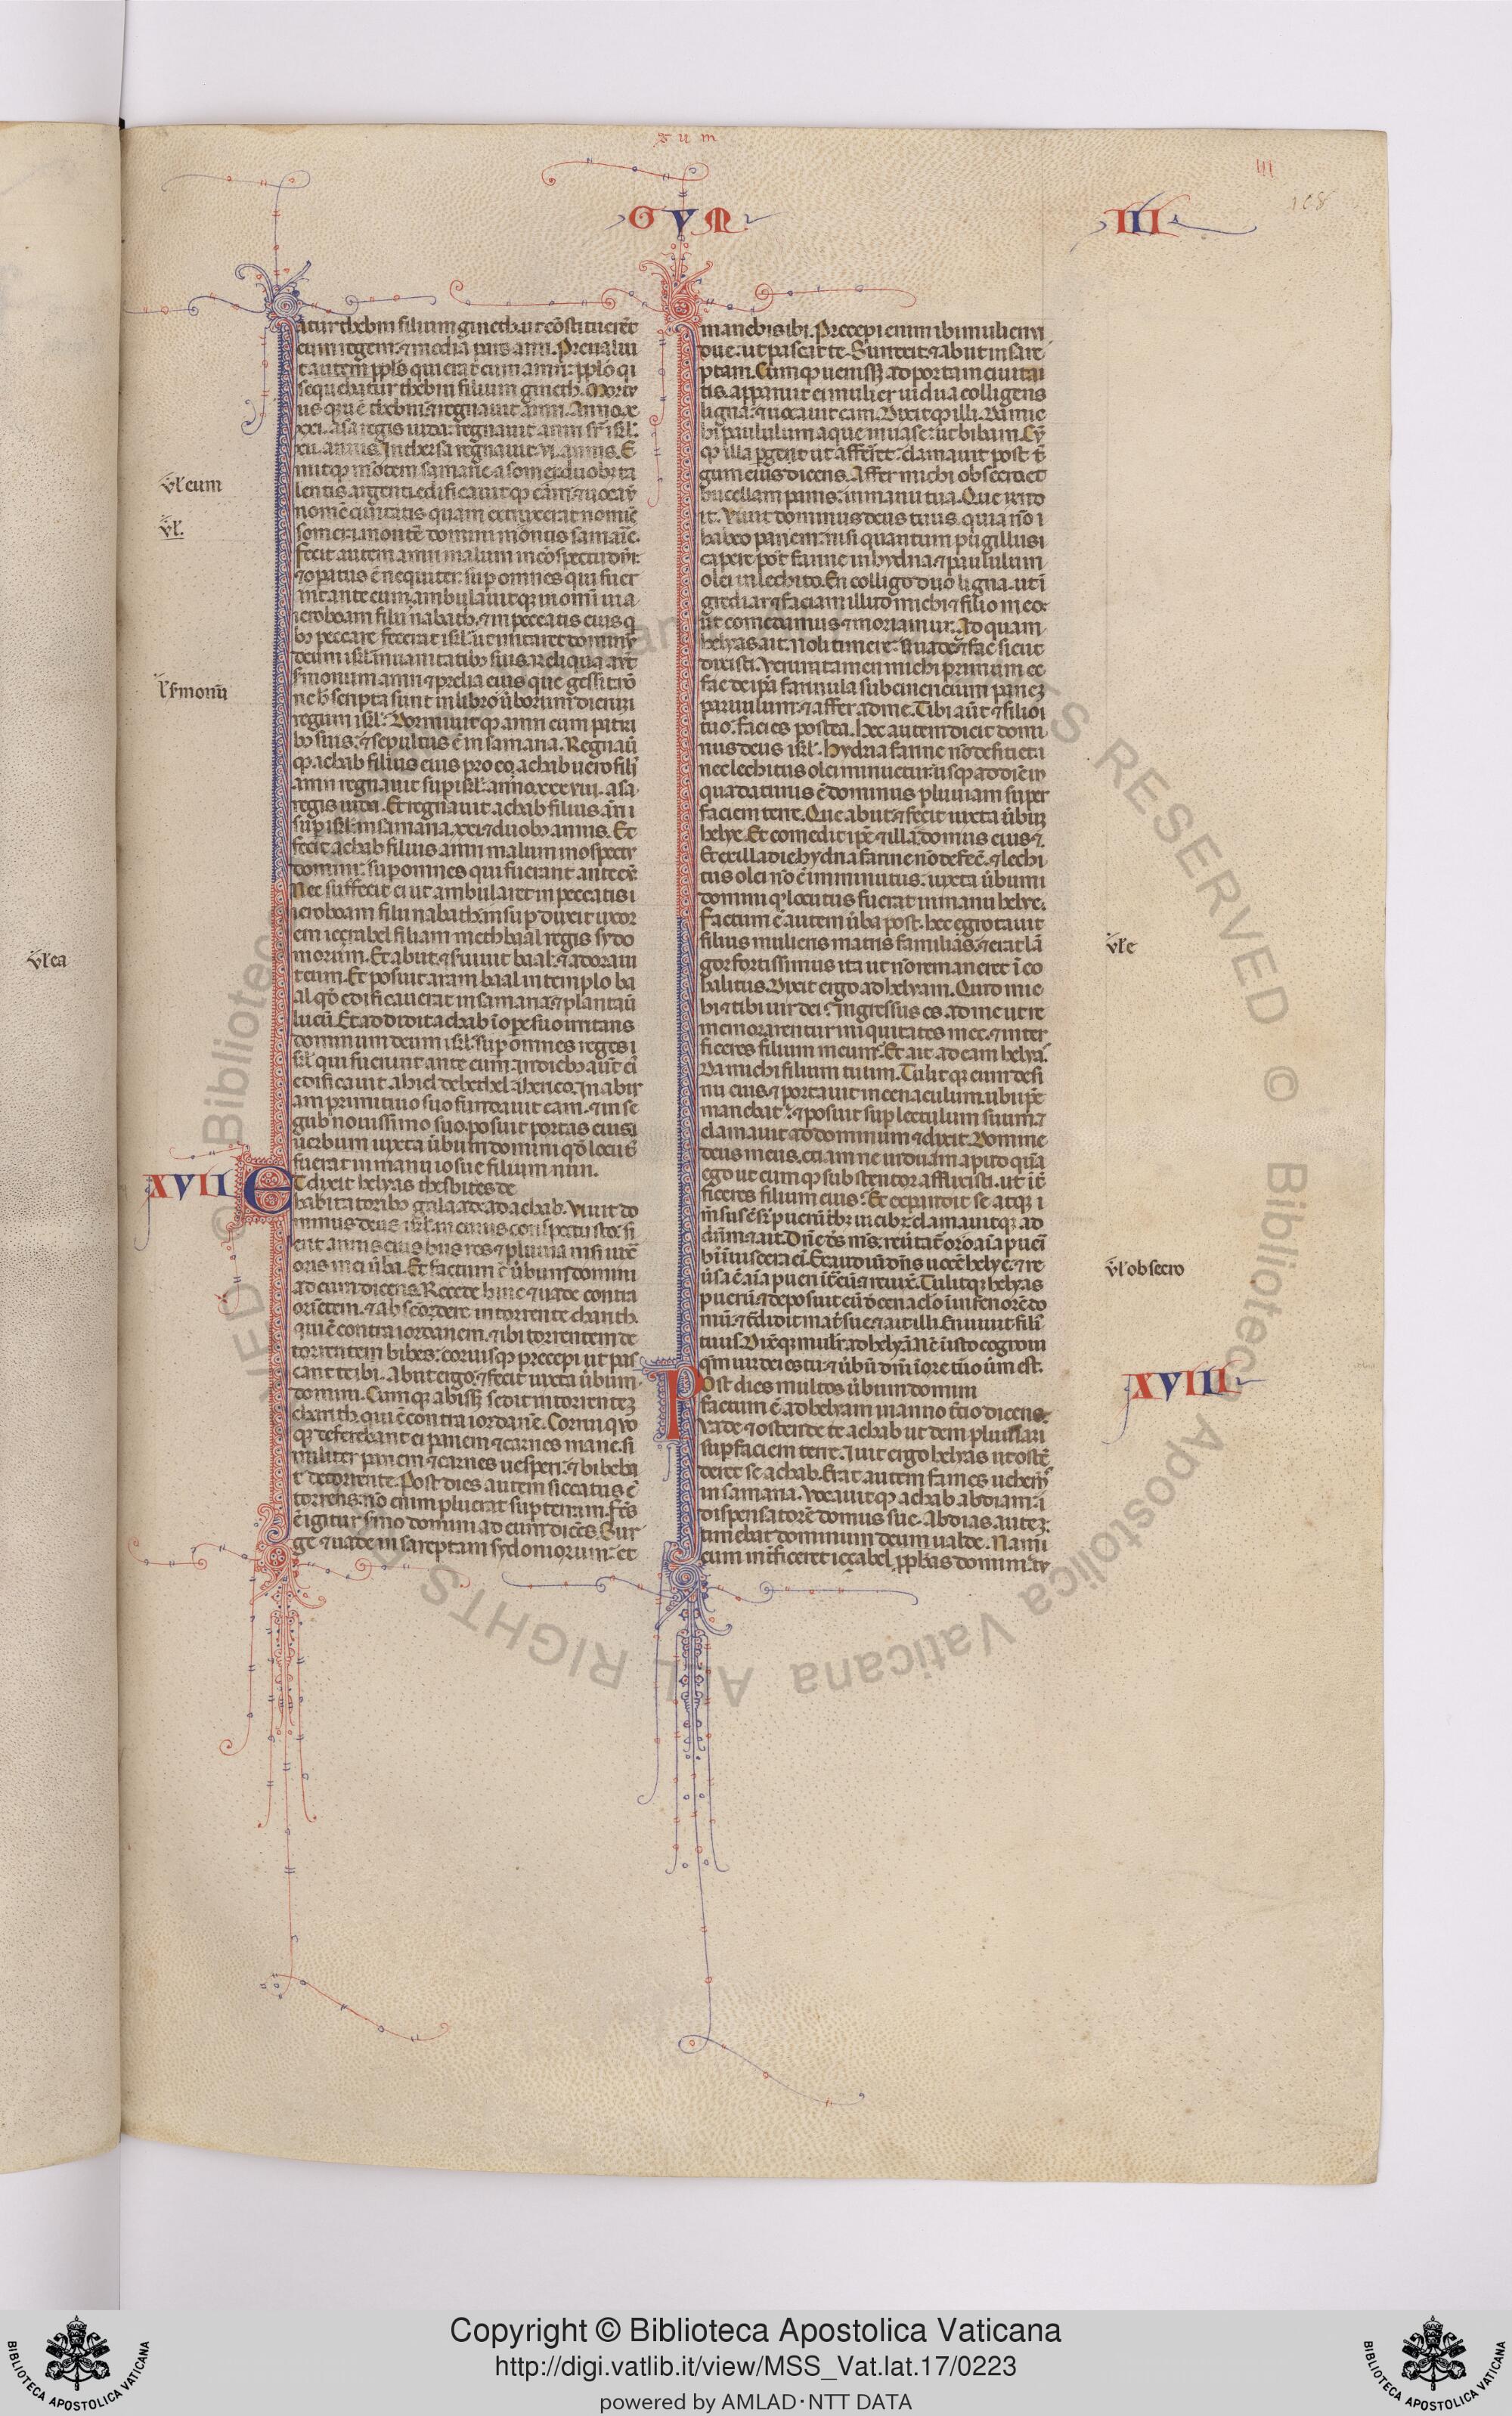 gum
GUM
III
III
108
atur thebni filium gineth. ut cōstitueret̄
eum regem: ⁊ media pars amri. Preualui
t autem ppl̄s qui erat cum amri: ppl̄o qi
sequebatur thebni filium gineth. Mortu
us qꝫ ē thebni: ⁊ regnauit amri. Anno. x
xxi. asa regis iuda: regnauit amri sr̄ isrl̄.
xii. annis. In thersa regnauit. vi. annis. E
mitqꝫ mōtem samarie a somer: duobꝫ ta
lentis argenti. edificauitqꝫ eam: ⁊ uocau̅
nomē ciuitatis quam extruxerat nomīe
somer: a montē domini montis samarīe.
fecit autem amri malum in cōspectu dn̄i:
⁊ opatus ē nequiter: sup omnes qui fuer
int ante eum. ambulauitqꝫ in omni uia
ieroboam filii nabath. ⁊ in peccatis eius q
bꝫ peccare fecerat isrl̄: ut irritaret dominū
deum isrl̄ in uanitatibꝫ suis. Reliqua aut̄
s̄monum amri ⁊ prelia eius que gessit: nō
ne h̄ scripta sunt in libro ūborum dierum
regum isrl̄. Dormiuitqꝫ amri cum patri
bꝫ suis: ⁊ sepultus ē in samaria. Regnau̅
qꝫ achab filius eius pro eo. achab uero fili̅
amri regnauit sup isrl̄: anno. xxxviii. asa
regis iuda. Et regnauit achab filius am̄ri
sup isrl̄ in samaria. xxi. ⁊ duobꝫ annis. Et
fecit achab filius amri malum in ospectu
domini: sup omnes qui fuerunt ante eū.
Nec suffecit ei ut ambularet in peccatis i
ieroboam filii nabath. insup duxit uxor
em iezabel filiam methbaal regis sydo
niorum. Et abiit. ⁊ seruiuit baal: ⁊ adoraui
t eum. Et posuit aram baal in templo ba
al qd̄ edificauerat in samaria: ⁊ plantau̅
lucū. Et addidit achab ī ope suo irritans
dominum deum isrl̄: sup omnes reges i
srl̄ qui fuerunt ante eum. In diebꝫ aūt ei̅
edificauit ahiel de bethel: iherico. In abir
am primitiuo suo fundauit eam. ⁊ in se
gub nouissimo suo. posuit portas eius:
uerbum iuxta ūbum domini qd̄ locut̄
fuerat in manu iosue filium nun.
XVII
ET dixit helyas thesbites de
habitatoribꝫ galaad: ad achab. Viuit do
minus deus isrl̄ in cuius conspectu sto: si
erit annis eius hiis ros ⁊ pluuia nisi iuxᵗ
oris mei ūba. Et factum ē ūbum domini
ad eum dicens. Recede hinc ⁊ uade contra
oriētem. ⁊ abscondere in torrente charith.
qui ē contra iordanem. ⁊ ibi torrentem de
torrentem bibes: coruisqꝫ precepi ut pas
cant te ibi. Abiit ergo. ⁊ fecit iuxta ūbum
domini. Cumqꝫ abiissꝫ sedit in torrentꝫ
charith. qui ē contra iordanē. Corui quo
qꝫ deferebant ei panem ⁊ carnes mane. si
militer panem ⁊ carnes uesperi: ⁊ bibeba
t de torrente. Post dies autem siccatus ē
torrens: nō enim pluerat sup terram. Fc̄s
ē igitur sermo domini ad eum dicēs. Sur
ge ⁊ uade in sareptam sydoniorum: et
manebis ibi. Precepi enim ibi mulieri vi
due: ut pascat te. Surrexit. ⁊ abiit in sare
ptam. Cumqꝫ uenissꝫ ad portam ciuitai
tis. apparuit ei mulier uidua colligens
ligna. ⁊ uocauit eam. Dixitqꝫ illi. Da mic
hi paululum aque in uase: ut bibam. Cū
qꝫ illa pgeret ut afferret: clamauit post t̄
gum eius dicens. Affer michi obsecro et
bucellam panis: in manu tua. Que rn̄d
it. Viuit dominus deus tuus. quia nō i
habeo panem: nisi quantum pugillus i
capere pot̄ farine in hydria. ⁊ paululum
olei in lechito. En colligo duo ligna. ut ī
grediar ⁊ faciam illud michi ⁊ filio meo:
ut comedamus ⁊ moriamur. Ad quam
helyas ait. Noli timere: s̄ uade ⁊ fac sicut
dixisti. Verumtamen michi primum ec
fac de ipā farinula subcinericium paneꝫ
paruulum: ⁊ affer ad me. Tibi aūt ⁊ filioi
tuo: facies postea. hec autem dicit domi
nus deus isrl̄. hydria farine nō deficiet:
nec lechitus olei minuetur: usqꝫ ad diē in
qua daturus ē dominus pluuiam super
faciem terre. Que abiit: ⁊ fecit iuxta ūbuꝫ
helye. Et comedit ipē ⁊ illa: domus eius ⁊.
Et ex illa die hydria farine nō defec̄. ⁊ lechi
tus olei nō ē imminutus: iuxta ūbum
domini qd̄ locutus fuerat in manu helye.
Factum ē autem ūba post. hec egrotauit
filius mulieris matris familias. ⁊ erat lā
gor fortissimus ita ut nō remaneret ī eo
halitus. Dixit ergo ad helyam. Quid mic
hi ⁊ tibi uir dei? Ingressus es ad me ut re
memorarentur iniquitates mee. ⁊ inter
ficeres filium meum? Et ait ad eam helya.
Da michi filium tuum. Tulitqꝫ eum de si
nu eius. ⁊ portauit in cenaculum ubi ipē
manebat: ⁊ posuit sup lectulum suum: ⁊
clamauit ad dominum ⁊ dixit. Domine
deus meus. etiam ne uiduam apud quā
ego ut cumqꝫ substentor afflixisti. ut īt̄
ficeres filium eius? Et expandit se atqꝫ i
m̄sus ē sr̄ puerū tbꝫ uicibꝫ: clamauitqꝫ ad
dn̄m ⁊ ait. Dn̄e ds̄ ms̄. reūtat̄ oro aīa pueri
hui̅ in uiscera ei̅. Exaudiū dn̄s uocē helye. ⁊ re
ūsa ē aīa pueri īt̄ eū ⁊ reuixᵗ. Tulitqꝫ helyas
puerū: ⁊ deposuit eū d̄ cenaclo ī inferiorē do
mū: ⁊ t̄didit mat̄ sue ⁊ ait illi. En uiuit fili̅
tuus. Dixitqꝫ muli̅ ad helyā. Nc̄ ī isto cognoui
qm̄ uir dei es tu. ⁊ ūbū dn̄i ī ore tuo ūm est.
XVIII
Post dies multos ūbum domini
factum ē ad helyam in anno t̄cio dicens.
Vade ⁊ ostende te achab ut dem pluuiam
sup faciem terre. Iuit ergo helyas ut ostē
deret se achab. Erat autem fames uehem̄s
in samaria. Vocauitqꝫ achab abdiam: i
dispensatorē domus sue. Abdias auteꝫ:
timebat dominum deum ualde. Nam i
cum īterficeret iezabel. pphetas domini: tu
ūl eum
ūl.
ūl s̄monū
ūl ea
ūl e
ūl obsecro
Copyright © Biblioteca Apostolica Vaticana
http://digi.vatlib.it/view/MSS_Vat.lat.17/0223
powered by AMLAD·NTT DATA
BIBLIOTECA APOSTOLICA VATICANA
BIBLIOTECA APOSTOLICA VATICANA